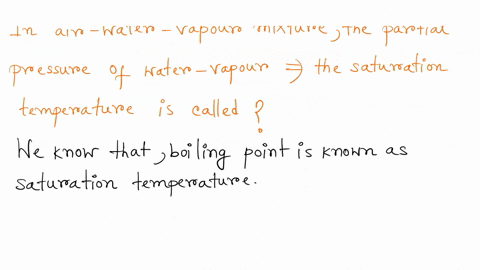 In air-water-vapour mixture, the partial
pressure of water-vapour ⇒ the saturation
temperature is called?
We know that, boiling point is known as
saturation temperature.